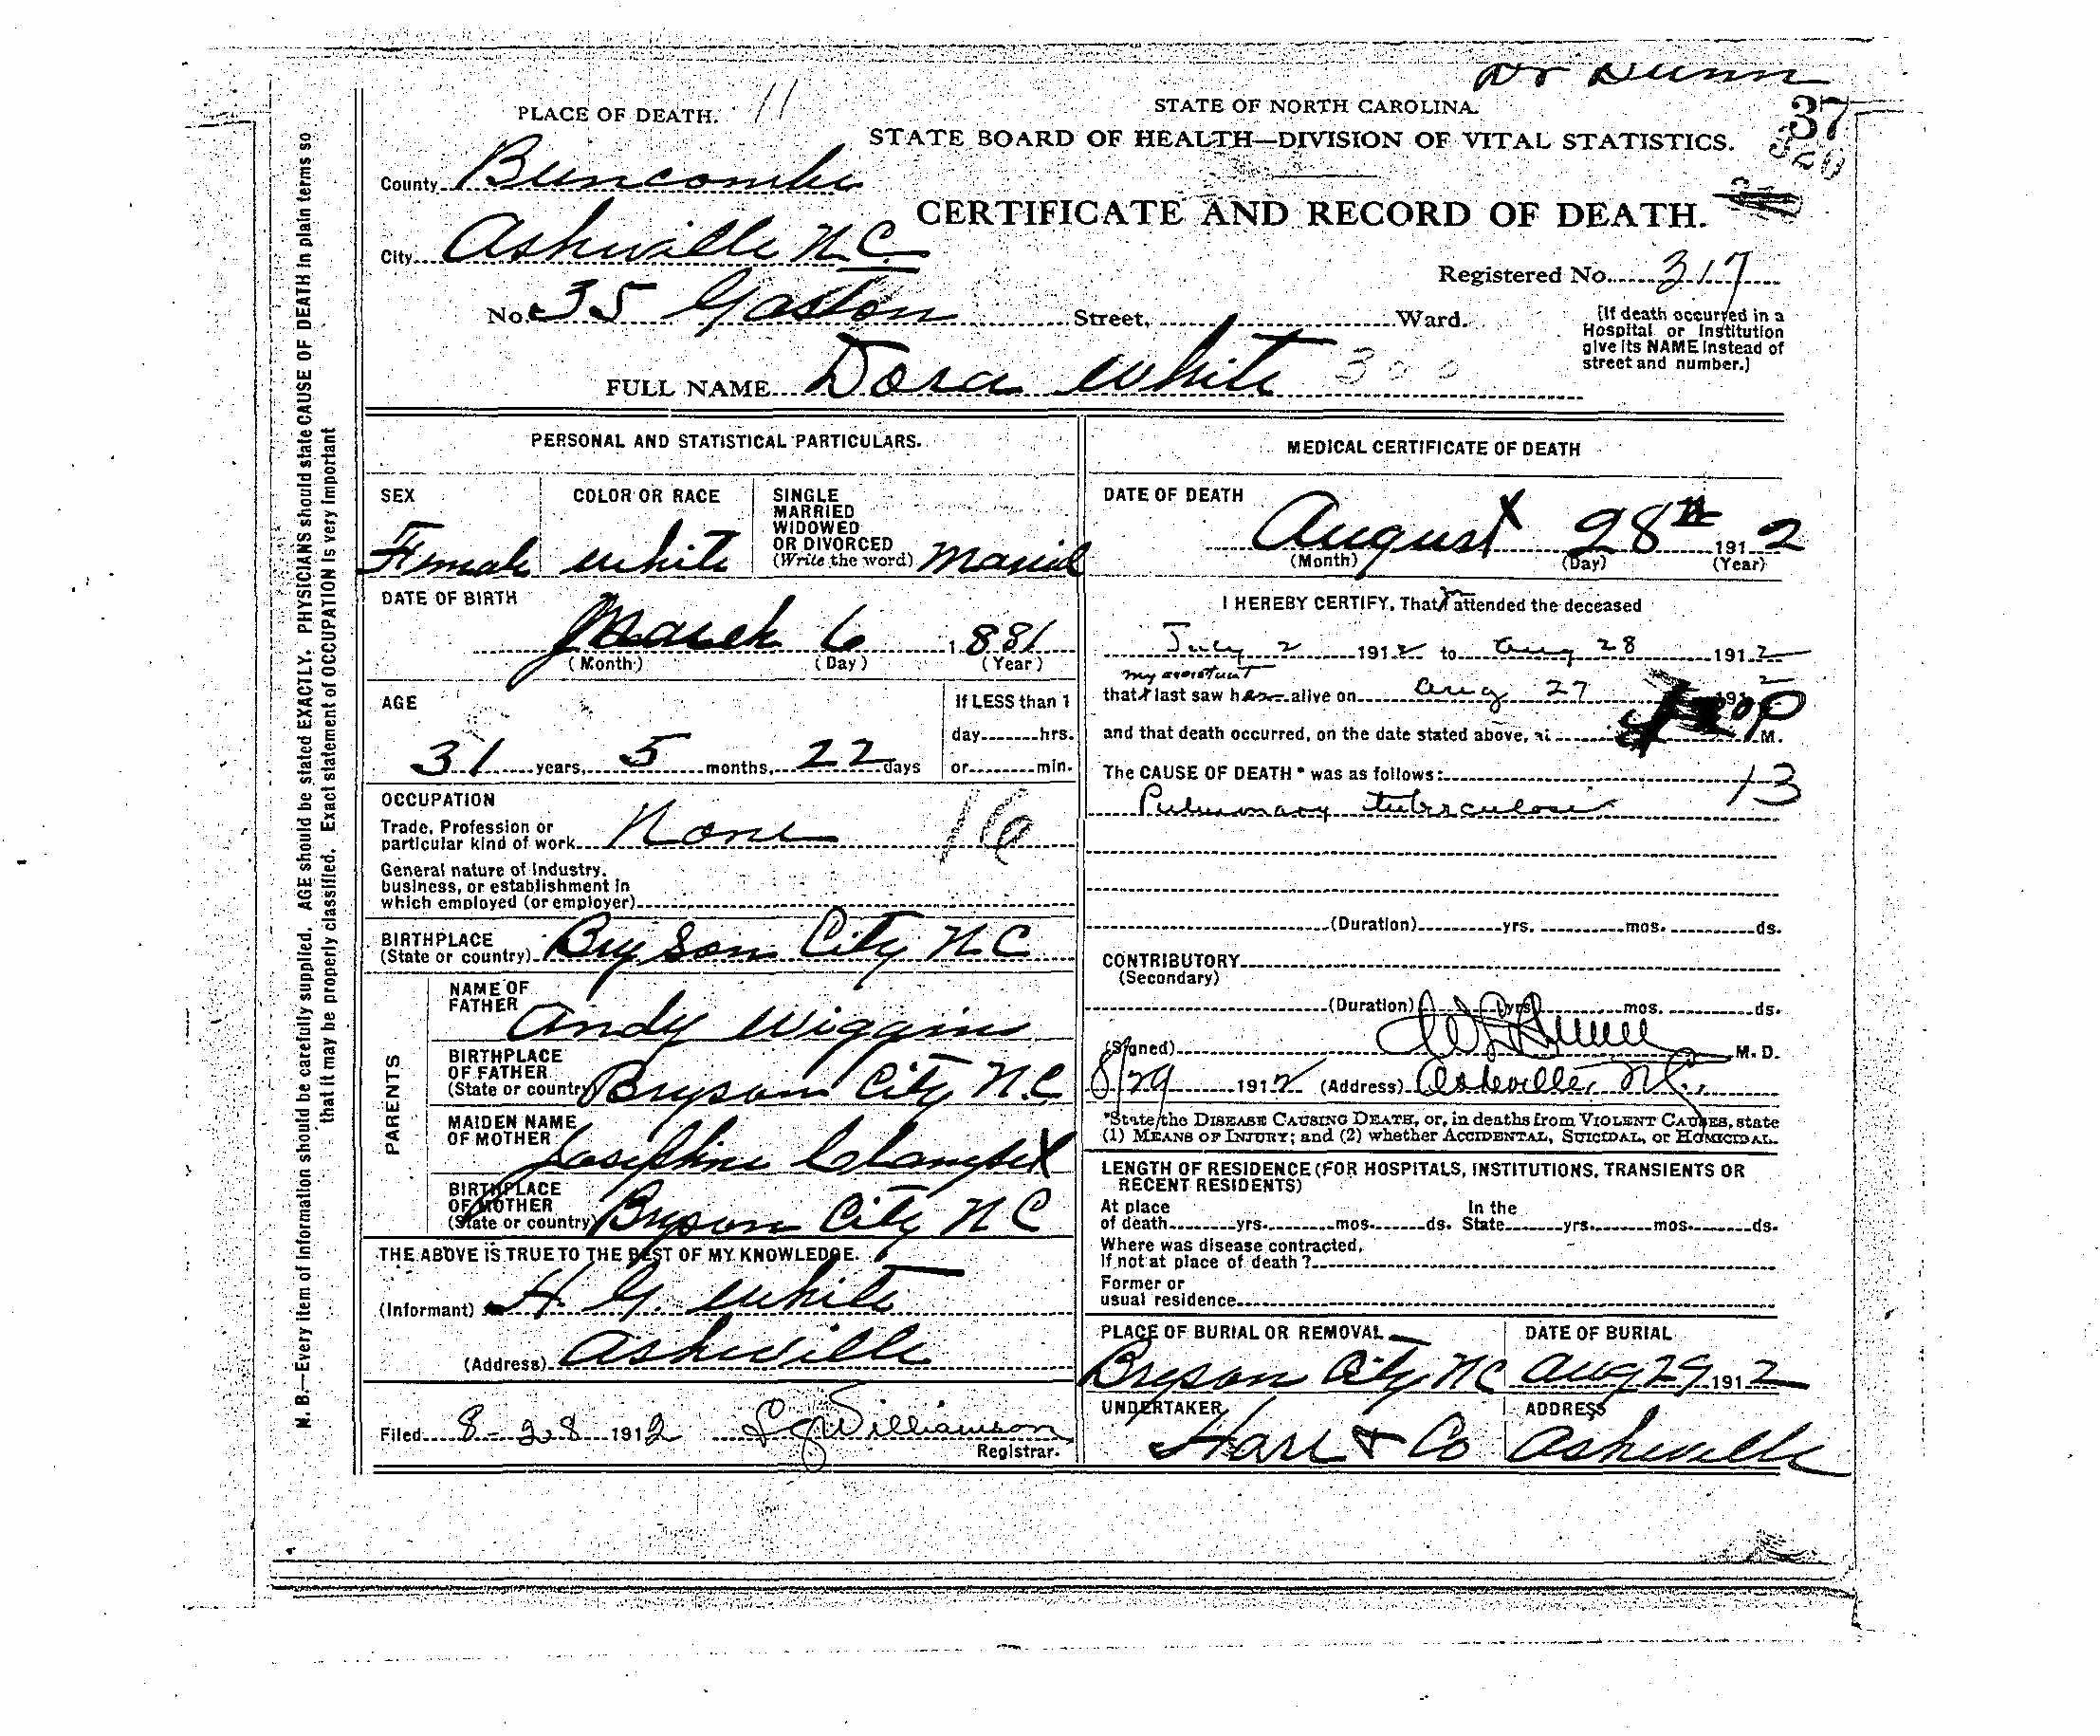 Dr Dunn
PLACE OF DEATH. 11
STATE OF NORTH CAROLINA.
37
STATE BOARD OF HEALTH—DIVISION OF VITAL STATISTICS.
320
County Buncombe
CERTIFICATE AND RECORD OF DEATH.
City Asheville N.C.
Registered No. 317
No. 35 Gaston Street, Ward.
[If death occurred in a
Hospital or Institution
give its NAME instead of
street and number.]
FULL NAME Dora White 300
PERSONAL AND STATISTICAL PARTICULARS.
SEX
Female
COLOR OR RACE
White
SINGLE
MARRIED
WIDOWED
OR DIVORCED
(Write the word) Married
DATE OF BIRTH
March 6 1881
(Month) (Day) (Year)
AGE
31 years, 5 months, 22 days
If LESS than 1
day hrs.
or min.
OCCUPATION
Trade, Profession or
particular kind of work None 16
General nature of industry,
business, or establishment in
which employed (or employer)
BIRTHPLACE
(State or country) Bryson City N C
PARENTS
NAME OF
FATHER Andy Wiggins
BIRTHPLACE
OF FATHER
(State or country) Bryson City N.C
MAIDEN NAME
OF MOTHER Josephine
BIRTHPLACE
OF MOTHER
(State or country) Bryson City N C
THE ABOVE IS TRUE TO THE BEST OF MY KNOWLEDGE.
(Informant) H G White
(Address) Asheville
Filed 8-28 1912 Williamson
Registrar.
MEDICAL CERTIFICATE OF DEATH
DATE OF DEATH
August 28th 1912
(Month) (Day) (Year)
I HEREBY CERTIFY, That I attended the deceased
July 2 1912 to Aug 28 1912
my assistant
that I last saw her alive on Aug 27 1912
and that death occurred, on the date stated above, at P M.
The CAUSE OF DEATH * was as follows: 13
Pulmonary tuberculosis
(Duration) yrs. mos. ds.
CONTRIBUTORY
(Secondary)
(Duration) yrs. mos. ds.
(Signed) Dunn M. D.
8/29 1912 (Address) Asheville, N.C.,
*State the DISEASE CAUSING DEATH, or, in deaths from VIOLENT CAUSES, state
(1) MEANS OF INJURY; and (2) whether ACCIDENTAL, SUICIDAL, or HOMICIDAL.
LENGTH OF RESIDENCE (FOR HOSPITALS, INSTITUTIONS, TRANSIENTS OR
RECENT RESIDENTS)
At place In the
of death yrs. mos. ds. State yrs. mos. ds.
Where was disease contracted,
If not at place of death?
Former or
usual residence
PLACE OF BURIAL OR REMOVAL
Bryson City NC
DATE OF BURIAL
Aug 29 1912
UNDERTAKER
Hare & Co
ADDRESS
Asheville
N. B.—Every item of information should be carefully supplied. AGE should be stated EXACTLY. PHYSICIANS should state CAUSE OF DEATH in plain terms so
that it may be properly classified. Exact statement of OCCUPATION is very important